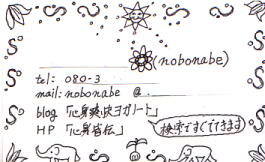 (nobonabe)
tel: 080-3
mail: nobonabe @.
blog「心身爽快ヨガノート」
HP 「心身皆伝」
検索ですぐでてきます